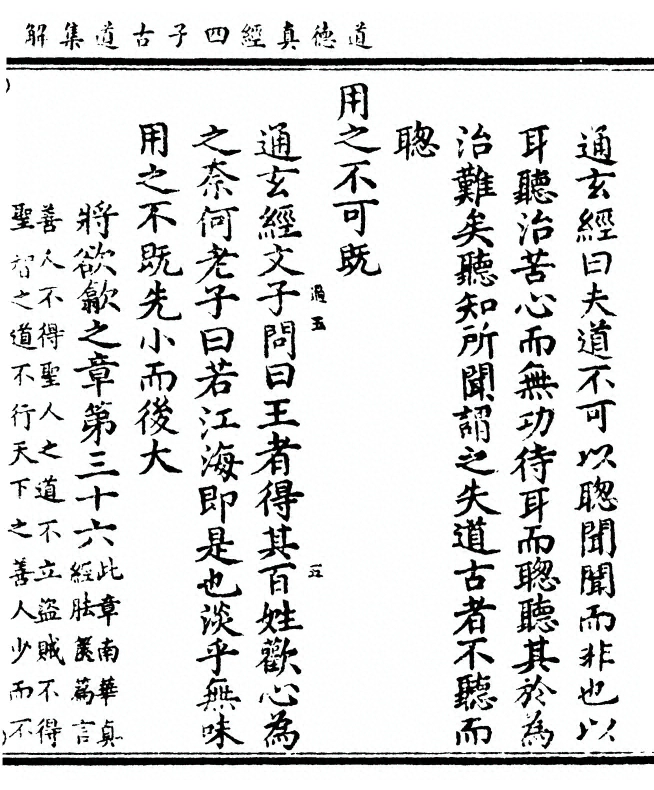 道德真經四子古道集解
通玄經曰夫道不可以聦聞聞而非也以
耳聽治苦心而無功待耳而聦聽其於為
治難矣聽知所聞謂之失道古者不聽而
聦
用之不可既
通玄經文子問曰王者得其百姓歡心為
過五
五
之柰何老子曰若江海即是也淡乎無味
用之不既先小而後大
將欲歙之章第三十六
此章南華真
經胠篋篇言
善人不得聖人之道不立盜賊不得
聖智之道不行天下之善人少而不